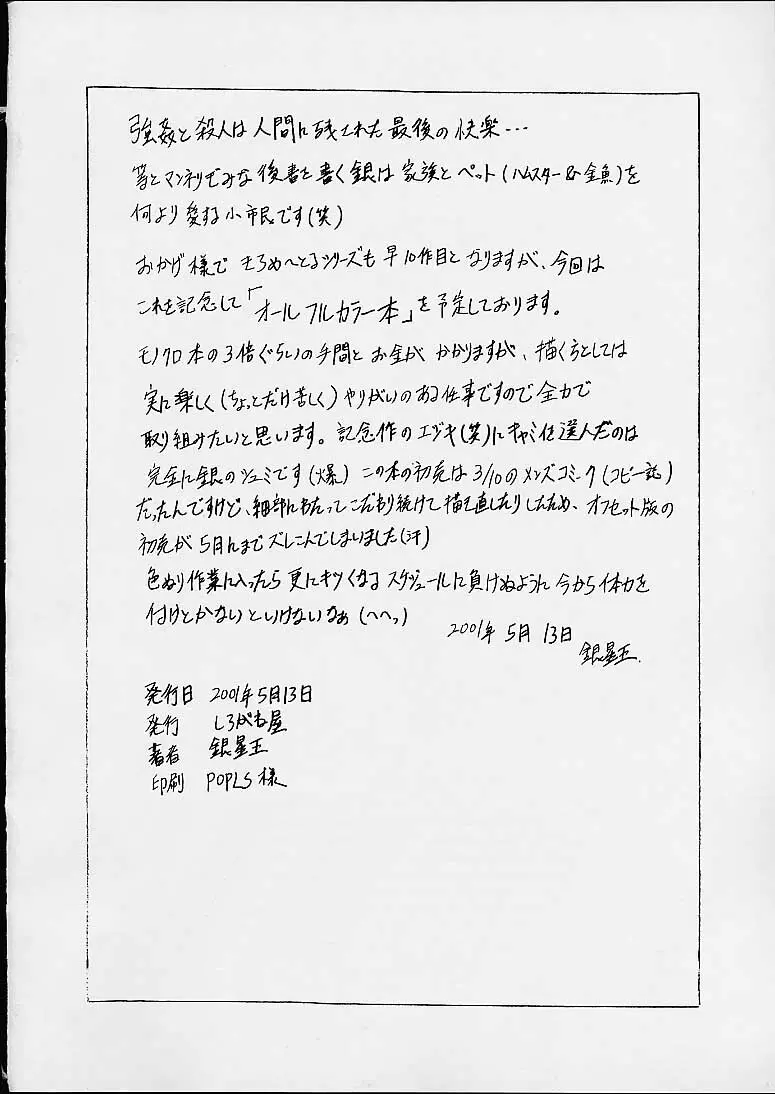 強姦と殺人は人間に残された最後の快楽…
等とマンネリでみな後書を書く銀は家族とペット(ハムスター&金魚)を
何より愛する小市民です(笑)
おかげ様で まろめーとるシリーズも早10作目となりますが、今回は
これを記念して「オールフルカラー本」を予定しております。
モノクロ本の3倍ぐらいの手間とお金がかかりますが、描く方としては
実に楽しく(ちょっとだけ苦しく)やりがいのある仕事ですので全力で
取り組みたいと思います。記念作のエジキ(笑)にキャミイを選んだのは
完全に銀のシュミです(爆) この本の初売は3/10のメンズコミック(コピー誌)
だったんですけど、細部にわたってこだわり続けて描き直したりしたため、オフセット版の
初売が5月にまでズレこんでしまいました(汗)
色ぬり作業に入ったら更にキツくなるスケジュールに負けぬように今から体力を
付けとかないといけないなぁ(へへっ)
2001年5月13日
銀星王.
発行日 2001年5月13日
発行 しろがね屋
著者 銀星王
印刷 POPLS様